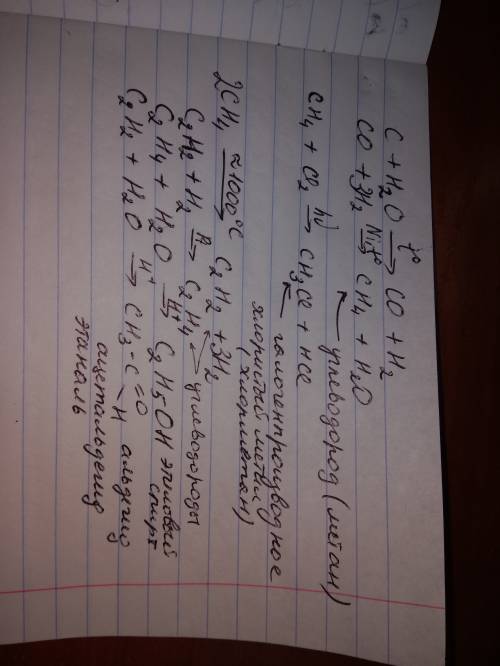 C + H₂O —t°→ CO + H₂
CO + 3H₂ —Ni, t°→ CH₄ + H₂O
углеводород (метан)
CH₄ + Cl₂ —hν→ CH₃Cl + HCl
галогенпроизводное
хлористый метил
(хлорметан)
2CH₄ —≈1000°C→ C₂H₂ + 3H₂
C₂H₂ + H₂ → C₂H₄ углеводороды
C₂H₄ + H₂O —H⁺→ C₂H₅OH этиловый
спирт
C₂H₂ + H₂O —H⁺→ CH₃-C=O
-H альдегид
ацетальдегид
этаналь